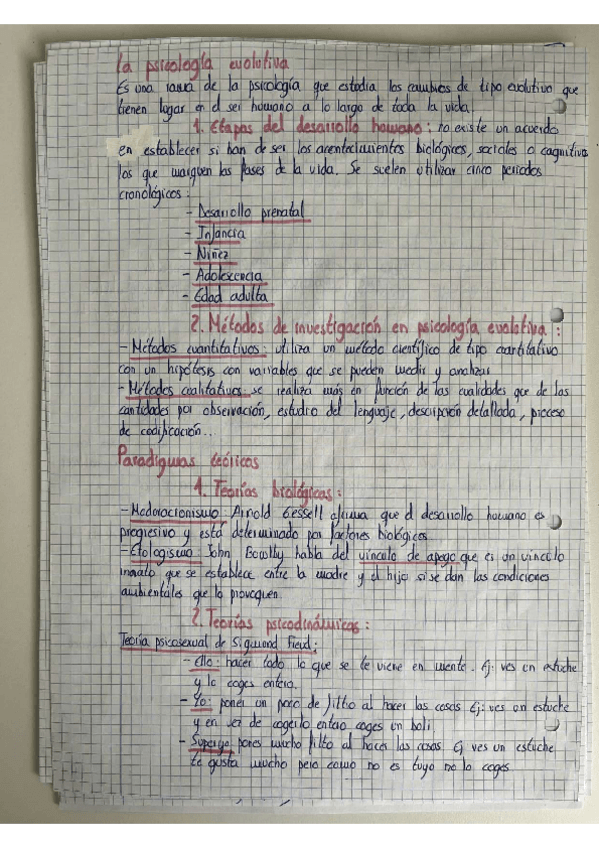 La psicología evolutiva
Es una rama de la psicología que estudia los cambios de tipo evolutivo que
tienen lugar en el ser humano a lo largo de toda la vida.
1. Etapas del desarrollo humano: no existe un acuerdo
en establecer si han de ser los acontecimientos biológicos, sociales o cognitivos
los que marquen las fases de la vida. Se suelen utilizar cinco periodos
cronológicos:
- Desarrollo prenatal
- Infancia
- Niñez
- Adolescencia
- Edad adulta
2. Métodos de investigación en psicología evolutiva:
- Métodos cuantitativos: utiliza un método científico de tipo cuantitativo
con un hipótesis con variables que se pueden medir y analizar
- Métodos cualitativos: se realiza más en función de las cualidades que de las
cantidades por observación, estudio del lenguaje, descripción detallada, proceso
de codificación...
Paradigmas teóricos
1. Teorías biológicas:
- Arnold Gessell afirma que el desarrollo humano es
progresivo y está determinado por factores biológicos
- Etologismo: John Bowlby habla del vínculo de apego que es un vínculo
innato que se establece entre la madre y el hijo si se dan las condiciones
ambientales que lo provoquen.
2. Teorías psicodinámicas:
Teoría psicosexual de Sigmund Freud:
- Ello: hacer todo lo que se te viene en mente. Ej: ves en estuche
y lo coges entero.
- Yo: poner un poco de filtro al hacer las cosas Ej: ves un estuche
y en vez de cogerlo entero coges un boli
- Superyo pones mucho filtro al hacer las cosas Ej ves un estuche
te gusta mucho pero como no es tuyo no lo coges